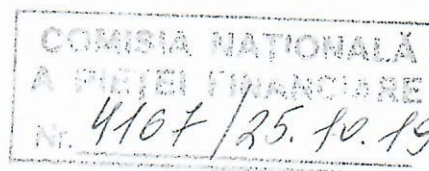 COMISIA NAȚIONALĂ
A PIEȚEI FINANCIARE
Nr. 4167/25.10.19